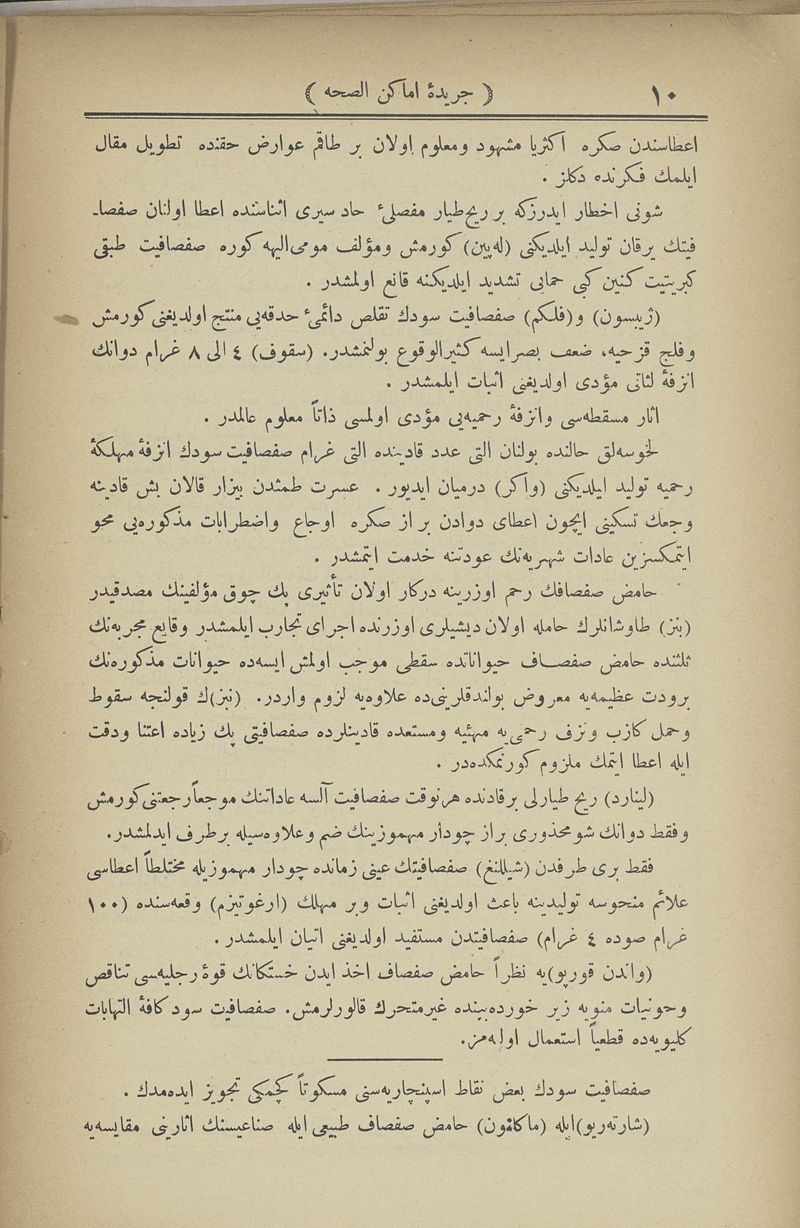 ١٠
( جريدهٔ اماكن الصحه )
اعطاسندن صكره اكثريا مشهود ومعلوم اولان بر طاقم عوارض حقنده تطويل مقال
ايلمك فكرنده دكلز .
شونى اخطار ايدرزكه بر ريح طيار مفصلىء حاد سيرى اثناسنده اعطا اولنان صفصا-
فيتك يرقان توليد ايلديكنى (لەپين) كورمش ومؤلف مومى اليهه كوره صفصافيت طبقى
كبريتيت كنين كبى حمايى تشديد ايلديكنه قانع اولمشدر .
(ژيبسون) و(فلكم) صفصافيت سودك تقلص دائمىء حدقه‌يى منتج اولديغنى كورمش
وفلج قزحيه، ضعف بصر ايسه كثيرالوقوع بولنمشدر. (سقوف) ٤ الى ٨ غرام دوانك
انزفهٔ لثائى مؤدى اولديغنى اثبات ايلمشدر .
اثار مسقطه‌سى وانزفهٔ رحميه‌يى مؤدى اولمسى ذاتاً معلوم عالمدر .
لخوسه‌لق حالنده بولنان التى عدد قادينده التى غرام صفصافيت سودك انزفهٔ مهلكهٔ
رحميه توليد ايلديكنى (واكر) درميان ايديور . عسرت طمثدن بيزار قالان بش قادينه
وجعك تسكينى ايچون اعطاى دوادن براز صكره اوجاع واضطرابات مذكوره‌يى محو
ايتمكسزين عادات شهريه‌نك عودتنه خدمت ايتمشدر .
حامض صفصافك رحم اوزرينه دركار اولان تأثيرى پك چوق مؤلفينك مصدقيدر
(بنز) طاوشانلرك حامله اولان ديشيلرى اوزرنده اجراى تجارب ايلمشدر وقايع مجربه‌نك
ثلثنده حامض صفصاف حيواناتده سقطى موجب اولمش ايسه‌ده حيوانات مذكوره‌نك
برودت عظيمه‌يه معروض بولندقلرينى‌ده علاوه‌يه لزوم واردر. (نبز)ك قولنجه سقوط
وحمل كازب ونزف رحمى‌يه مهيئه ومستعده قادينلرده صفصافيتى پك زياده اعتنا ودقت
ايله اعطا ايتمك ملزوم كورنمكده‌در .
(لينارد) ريح طيارلى برقادنده هرنوقت صفصافيت آلسه عاداتنك موجعاً رجعتنى كورمش
وفقط دوانك شو محذورى براز چودار مهموزينك ضم وعلاوه‌سيله برطرف ايدلمشدر.
فقط برى طرفدن (شيللنغ) صفصافيتك عينى زمانده چودار مهموزيله مختلطاً اعطاسى
علائم منحوسه توليدينه باعث اولديغنى اثبات وبر مهلك (ارغوتيزم) وقعه‌سنده (١٠٠
غرام صوده ٤ غرام) صفصافيتدن مستفيد اولديغنى اتيان ايلمشدر.
(واندن قورپو)يه نظراً حامض صفصاف اخذ ايدن خستكانك قوهٔ رجليه‌سى تناقص
وحونيات منويه زير خورده‌بينده غيرمتحرك قالورلرمش. صفصافيت سود كافهٔ التهابات
كليويه‌ده قطعياً استعمال اوله‌مز.
صفصافيت سودك بعض نقاط اسپنچاريه‌سنى مسكوتاً كچمكى تجويز ايده‌مدك .
(شارته‌ريو)ايله (ماكانون) حامض صفصاف طبيعى ايله صناعيسنك اثارينى مقايسه‌يه